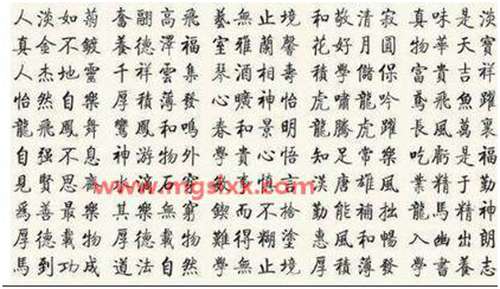 人淡如菊 奮翮高飛 藝無止境 和敬清寂 真味是淡
真金不鍍 養德澤福 室雅蘭馨 花好月圓 物華天寶
人杰地靈 千祥雲集 琴酒相壽 積學儲保 富貴吉祥
怡然自樂 厚積薄發 心曠神怡 虎嘯龍吟 鳶飛魚躍
龍飛鳳舞 鸞鳳和鳴 春和景明 龍騰虎躍 長風萬裏
自强不息 神游物外 學貴心悟 知足常樂 吃虧是福
見賢思 水滴石 心慎言 漢唐雄風 業精于勤
www.mgslxx.com
爲善最樂 其樂無窮 鍥而不捨 勤能補拙 龍馬精神
厚德載物 厚德載物 難得糊塗 惠風和暢 入幽出朗
馬到功成 道法自然 學無止境 厚積薄發 學書養志